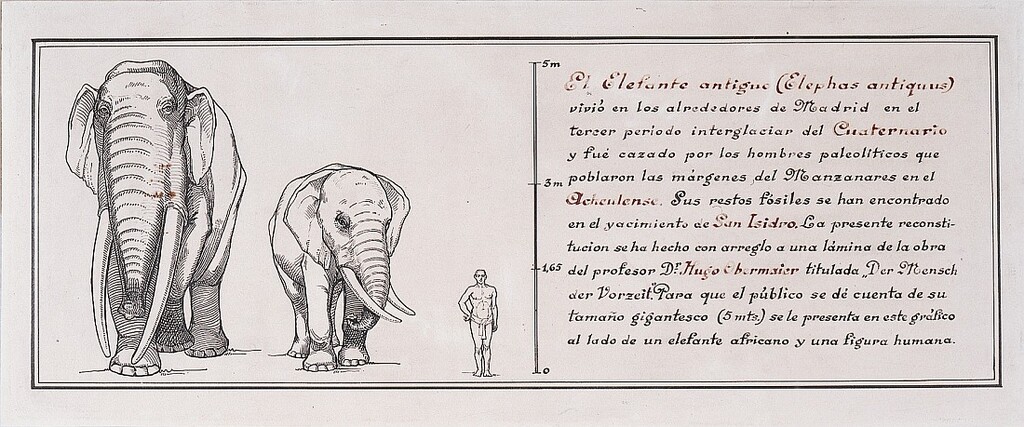 5m
3m
1,65
0
El Elefante antiguo (Elephas antiquus)
vivió en los alrededores de Madrid en el
tercer período interglaciar del Cuaternario
y fué cazado por los hombres paleolíticos que
poblaron las márgenes del Manzanares en el
Acheulense. Sus restos fósiles se han encontrado
en el yacimiento de San Isidro. La presente reconsti-
tucion se ha hecho con arreglo a una lámina de la obra
del profesor Dr. Hugo Obermaier titulada „Der Mensch
der Vorzeit." Para que el público se dé cuenta de su
tamaño gigantesco (5 mts.) se le presenta en este gráfico
al lado de un elefante africano y una figura humana.